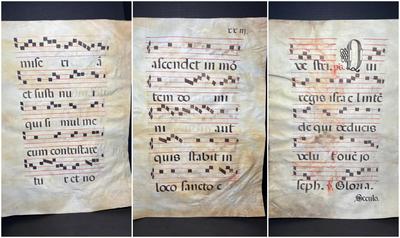 mise ri ā
et susti nu i
qui si mul me
cum contristare
tu r et no
xx iij
ascendet in mō
tem do mi
ni aut
quis stabit in
loco sancto e
ve stri. ps. Qui
regis isra el intē
de qui deducis
velu t ovē jo
seph. Gloria.
Seculo.